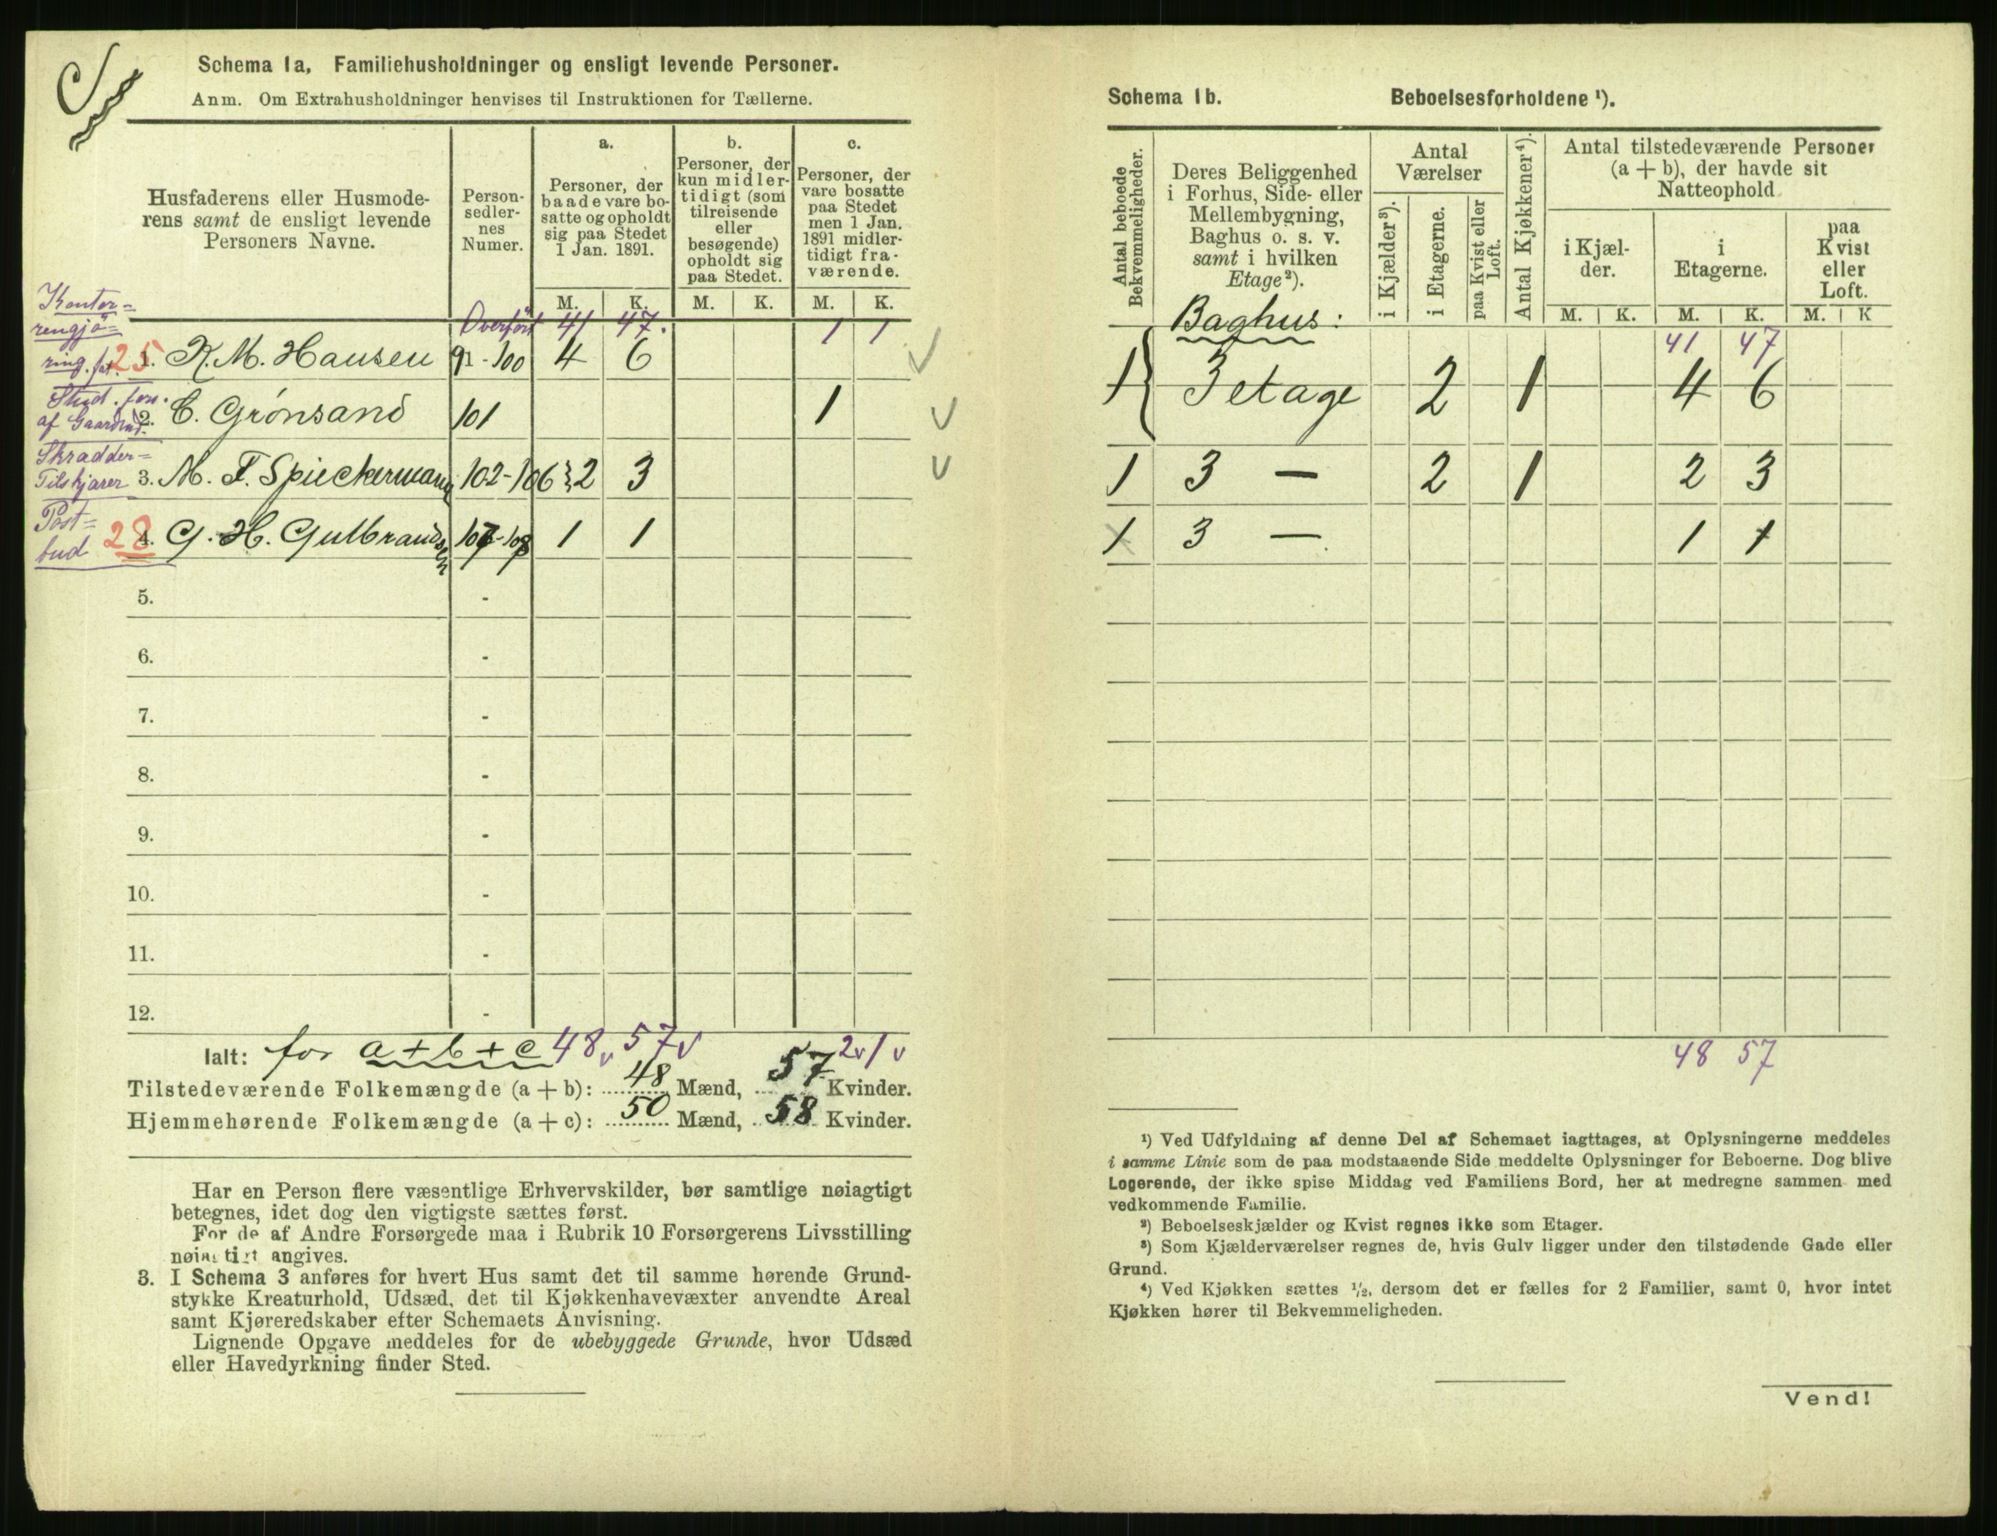 Schema 1a. Familiehusholdninger og ensligt levende Personer.
Anm. Om Extrahusholdninger henvises til Instruktionen for Tællerne.
Husfaderens eller Husmode-
rens samt de ensligt levende
Personers Navne.
Person-
sedler-
nes
Numer.
a.
Personer, der
baade vare bo-
satte og opholdt
sig paa Stedet
1 Jan. 1891.
b.
Personer, der
kun midler-
tidigt (som
tilreisende
eller
besøgende)
opholdt sig
paa Stedet.
c.
Personer, der
vare bosatte
paa Stedet
men 1 Jan.
1891 midler-
tidigt fra-
værende.
M. K. M. K. M. K.
Overført 41 47. 1 1
Kontor-
rengjö-
ring. fat.
25 1. K. M. Hansen 91-100 4 6
Stud. fon.
af Gaard
2. C. Grønsand 101 1
Skradder-
Tilskjærer 3. M. F. Spieckermann 102-106 2 3
Post-
bud 28 4. G. H. Gulbrandsen 107-108 1 1
5. -
6. -
7. -
8. -
9. -
10. -
11. -
12. -
Ialt: for a+b+c 48 v 57 v 2 v 1 v
Tilstedeværende Folkemængde (a + b): 48 Mænd, 57 Kvinder.
Hjemmehørende Folkemængde (a + c): 50 Mænd, 58 Kvinder.
Har en Person flere væsentlige Erhvervskilder, bør samtlige nøiagtigt
betegnes, idet dog den vigtigste sættes først.
For de af Andre Forsørgede maa i Rubrik 10 Forsørgerens Livsstilling
nøiagtigt angives.
3. I Schema 3 anføres for hvert Hus samt det til samme hørende Grund-
stykke Kreaturhold, Udsæd, det til Kjøkkenhavevæxter anvendte Areal
samt Kjøreredskaber efter Schemaets Anvisning.
Lignende Opgave meddeles for de ubebyggede Grunde, hvor Udsæd
eller Havedyrkning finder Sted.
Schema 1b. Beboelsesforholdene ¹).
Antal beboede
Bekvemmeligheder.
Deres Beliggenhed
i Forhus, Side- eller
Mellembygning,
Baghus o. s. v.
samt i hvilken
Etage²).
Antal
Værelser
i Kjælder³).
i Etagerne.
paa Kvist eller
Loft.
Antal Kjøkkener⁴).
Antal tilstedeværende Personer
(a + b), der havde sit
Natteophold
i Kjæl-
der.
i
Etagerne.
paa
Kvist
eller
Loft.
M. K. M. K. M. K
Baghus:
41 47
1 3 etage 2 1 4 6
1 3 — 2 1 2 3
1 3 — 1 1
48 57
¹) Ved Udfyldning af denne Del af Schemaet iagttages, at Oplysningerne meddeles
i samme Linie som de paa modstaaende Side meddelte Oplysninger for Beboerne. Dog blive
Logerende, der ikke spise Middag ved Familiens Bord, her at medregne sammen med
vedkommende Familie.
²) Beboelseskjælder og Kvist regnes ikke som Etager.
³) Som Kjælderværelser regnes de, hvis Gulv ligger under den tilstødende Gade eller
Grund.
⁴) Ved Kjøkken sættes ½, dersom det er fælles for 2 Familier, samt 0, hvor intet
Kjøkken hører til Bekvemmeligheden.
Vend!